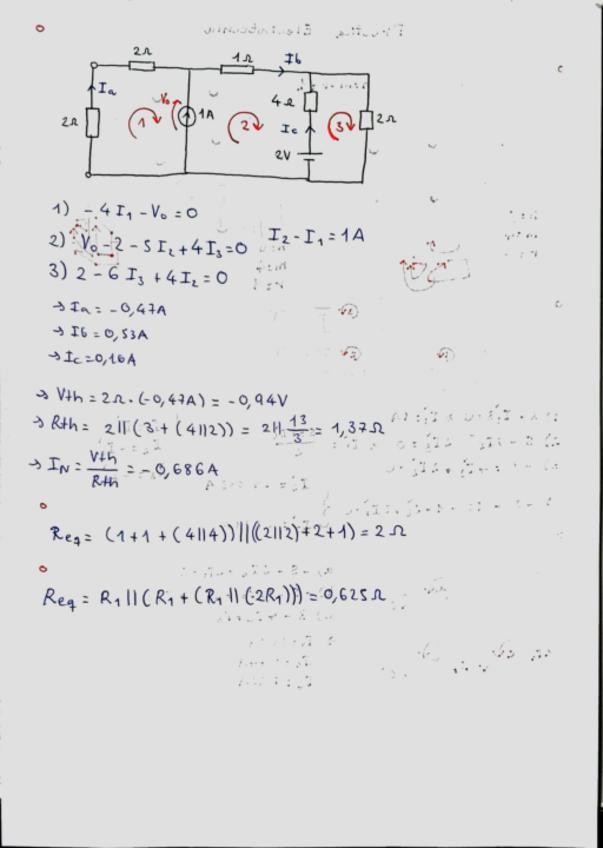 2Ω 1Ω Ib
Ia V₀ 1A 4Ω
2Ω 1 2 Ic 3 2Ω
2V
1) -4I₁ - V₀ = 0
I₂ - I₁ = 1A
2) V₀ - 2 - 5I₂ + 4I₃ = 0
3) 2 - 6I₃ + 4I₂ = 0
→ Ia = -0,47A
→ Ib = 0,53A
→ Ic = 0,16A
→ Vth = 2Ω · (-0,47A) = -0,94V
→ Rth = 2||(3 + (4||2)) = 2||13/3 = 1,37Ω
→ IN = Vth/Rth = -0,686A
Req = (1+1+(4||4))||((2||2)+2+1) = 2Ω
Req = R1||(R1 + (R1||(2R1))) = 0,625Ω